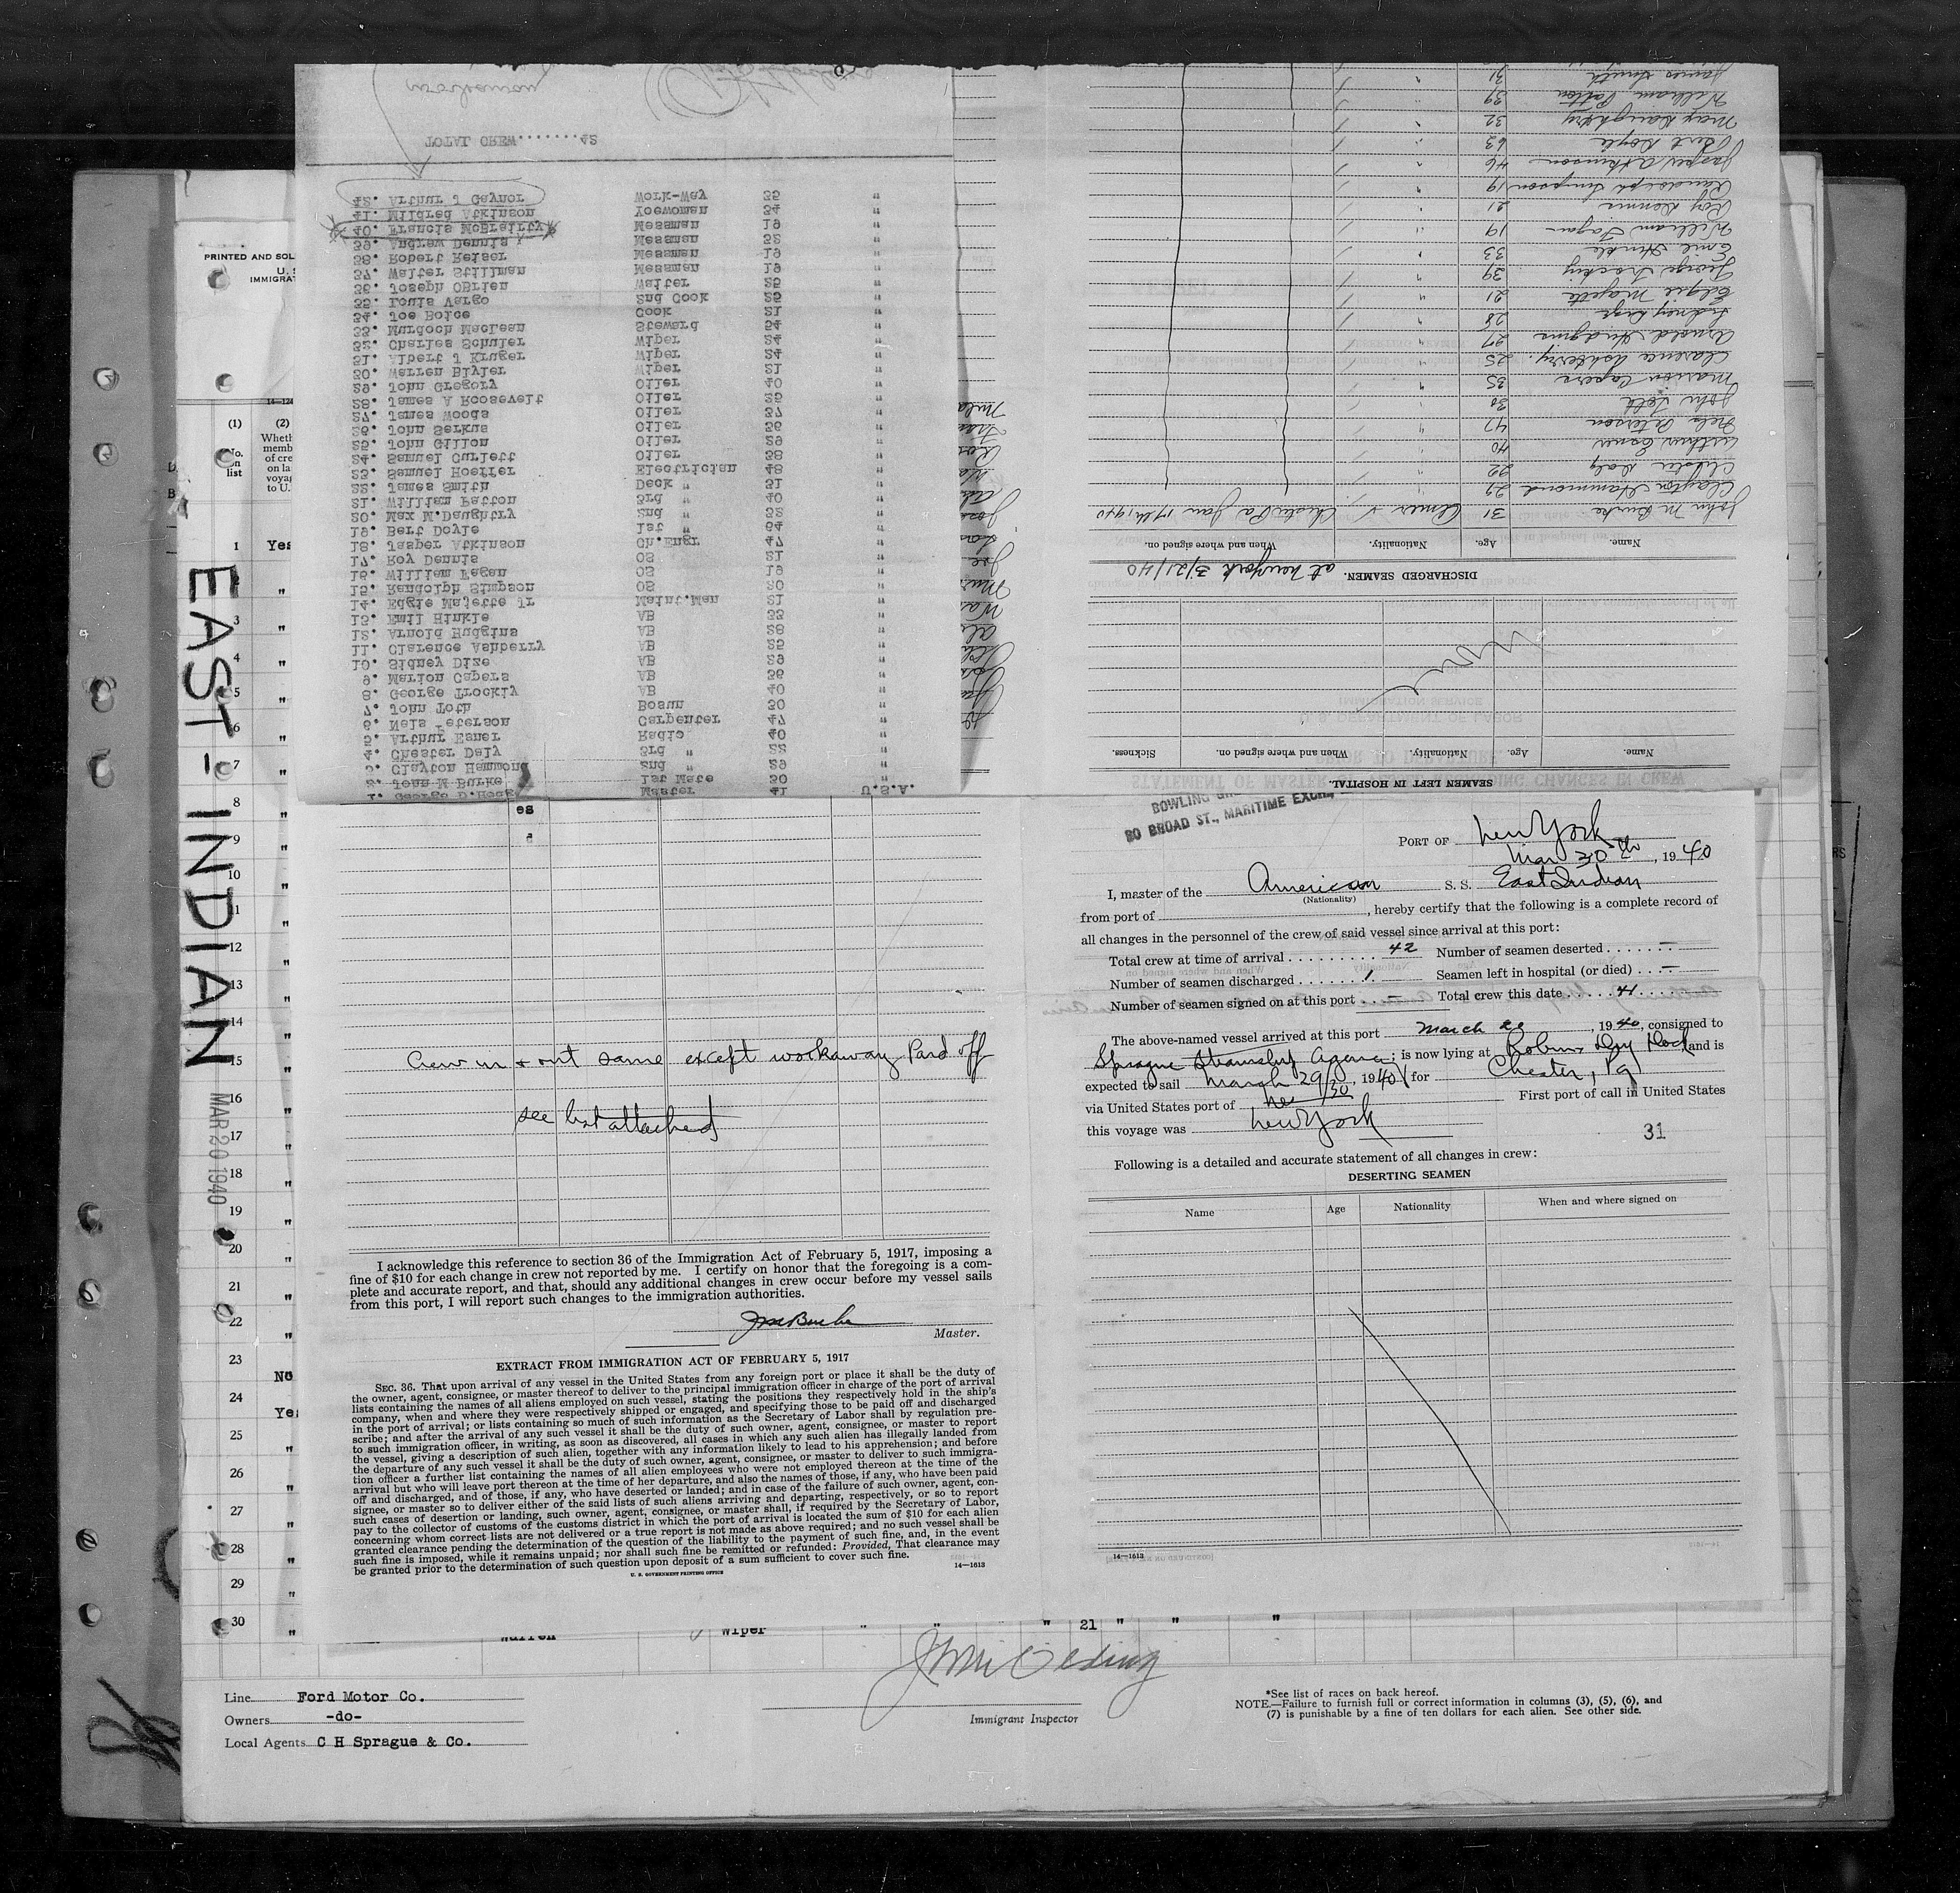 TOTAL CREW........42
42. Arthur J Gaynor Work-Way 35 "
41. Mildred Atkinson Yoewoman 34 "
40. Francis McBrairty Messman 19 "
39. Andrew Dennis Messman 32 "
38. Robert Reiser Messman 19 "
37. Walter Stillman Messman 19 "
36. Joseph OBrien Waiter 25 "
35. Louis Vargo 2nd Cook 25 "
34. Joe Boice Cook 21 "
33. Murdoch MacLean Steward 54 "
32. Charles Schuler Wiper 24 "
31. Albert J Kruger Wiper 24 "
30. Warren Blyler Wiper 21 "
29. John Gregory Oiler 40 "
28. James A Roosevelt Oiler 25 "
27. James Woods Oiler 37 "
26. John Serkus Oiler 36 "
25. John Gillon Oiler 29 "
24. Samuel Curlett Oiler 58 "
23. Samuel Hoeffer Electrician 48 "
22. James Smith Deck " 31 "
21. William Patton 3rd " 40 "
20. Max M.Daughtry 2nd " 32 "
19. Bert Doyle 1st " 64 "
18. Jasper Atkinson Ch.Engr 47 "
17. Roy Dennis OS 21 "
16. William Fagan OS 19 "
15. Randolph Simpson OS 20 "
14. Edgie Majette Jr Maint.Man 21 "
13. Emil Hinkle AB 33 "
12. Arnold Hudgins AB 28 "
11. Clarence Ashberry AB 25 "
10. Sidney Dize AB 29 "
9. Marion Capers AB 36 "
8. George Trockly AB 40 "
7. John Toth Bosun 30 "
6. Nels Peterson Carpenter 47 "
5. Arthur Esner Radio 40 "
4. Chester Daly 3rd " 22 "
3. Clayton Hammond 2nd " 29 "
2. John M Burke 1st Mate 30 "
1. George D.Hodg Master 41 U.S.A.
James Smith 31 "
William Patton 39 "
Max Daughtry 32 "
Bert Doyle 63 "
Jasper Atkinson 46 "
Randolph Simpson 19 "
Roy Dennis 21 "
William Fagan 19 "
Emil Hinkle 33 "
George Trockly 39 "
Edgie Majette 21 "
Sidney Dize 28 "
Arnold Hudgins 27 "
Clarence Ashberry 25 "
Marion Capers 35 "
John Toth 30 "
Nels Peterson 47 "
Arthur Esner 40 "
Chester Daly 22 "
Clayton Hammond 29 "
John M Burke 31 Amer Chester Pa Jan 17th, 1940
Name. Age. Nationality. When and where signed on.
DISCHARGED SEAMEN. at New York 3/21/40
Name. Age. Nationality. When and where signed on. Sickness.
SEAMEN LEFT IN HOSPITAL
PRINTED AND SOL
U. S
IMMIGRA
(1) (2)
No. on list
Wheth
memb
of cre
on la
voyag
to U.
EAST-INDIAN
MAR 20 1940
1 Yes
3 "
4 "
5 "
6 "
7 "
8 "
9 "
10 "
11 "
12 "
13 "
14 "
15 "
16 "
17 "
18 "
19 "
20 "
21 "
22 "
23 No
24 Yes
25 "
26 "
27 "
28 "
29 "
30 "
Crew in & out same except workaway Paid off
see list attached
I acknowledge this reference to section 36 of the Immigration Act of February 5, 1917, imposing a
fine of $10 for each change in crew not reported by me. I certify on honor that the foregoing is a com-
plete and accurate report, and that, should any additional changes in crew occur before my vessel sails
from this port, I will report such changes to the immigration authorities.
JM Burke
Master.
EXTRACT FROM IMMIGRATION ACT OF FEBRUARY 5, 1917
SEC. 36. That upon arrival of any vessel in the United States from any foreign port or place it shall be the duty of
the owner, agent, consignee, or master thereof to deliver to the principal immigration officer in charge of the port of arrival
lists containing the names of all aliens employed on such vessel, stating the positions they respectively hold in the ship's
company, when and where they were respectively shipped or engaged, and specifying those to be paid off and discharged
in the port of arrival; or lists containing so much of such information as the Secretary of Labor shall by regulation pre-
scribe; and after the arrival of any such vessel it shall be the duty of such owner, agent, consignee, or master to report
to such immigration officer, in writing, as soon as discovered, all cases in which any such alien has illegally landed from
the vessel, giving a description of such alien, together with any information likely to lead to his apprehension; and before
the departure of any such vessel it shall be the duty of such owner, agent, consignee, or master to deliver to such immigra-
tion officer a further list containing the names of all alien employees who were not employed thereon at the time of the
arrival but who will leave port thereon at the time of her departure, and also the names of those, if any, who have been paid
off and discharged, and of those, if any, who have deserted or landed; and in case of the failure of such owner, agent, con-
signee, or master so to deliver either of the said lists of such aliens arriving and departing, respectively, or so to report
such cases of desertion or landing, such owner, agent, consignee, or master shall, if required by the Secretary of Labor,
pay to the collector of customs of the customs district in which the port of arrival is located the sum of $10 for each alien
concerning whom correct lists are not delivered or a true report is not made as above required; and no such vessel shall be
granted clearance pending the determination of the question of the liability to the payment of such fine, and, in the event
such fine is imposed, while it remains unpaid; nor shall such fine be remitted or refunded: Provided, That clearance may
be granted prior to the determination of such question upon deposit of a sum sufficient to cover such fine.
14—1613
U. S. GOVERNMENT PRINTING OFFICE
80 BROAD ST., MARITIME EXCH
PORT OF New York
Mar 30th, 1940
I, master of the American S. S. East Indian
(Nationality)
from port of , hereby certify that the following is a complete record of
all changes in the personnel of the crew of said vessel since arrival at this port:
Total crew at time of arrival . . . . . . . . . 42 Number of seamen deserted . . . . . . —
Number of seamen discharged . . . . . . 1 Seamen left in hospital (or died) . . . —
Number of seamen signed on at this port . . . — Total crew this date . . . . . 41 . . . .
The above-named vessel arrived at this port March 20, 1940, consigned to
Sprague Steamship Agency; is now lying at Robins Dry Dock and is
expected to sail March 29/30, 1940, for Chester, Pa
via United States port of First port of call in United States
this voyage was New York
31
Following is a detailed and accurate statement of all changes in crew:
DESERTING SEAMEN
Name Age Nationality When and where signed on
14—1613
Warren Wiper " " " 21 " " "
Line Ford Motor Co.
Owners -do-
Local Agents C H Sprague & Co.
Immigrant Inspector
*See list of races on back hereof.
NOTE.—Failure to furnish full or correct information in columns (3), (5), (6), and
(7) is punishable by a fine of ten dollars for each alien. See other side.